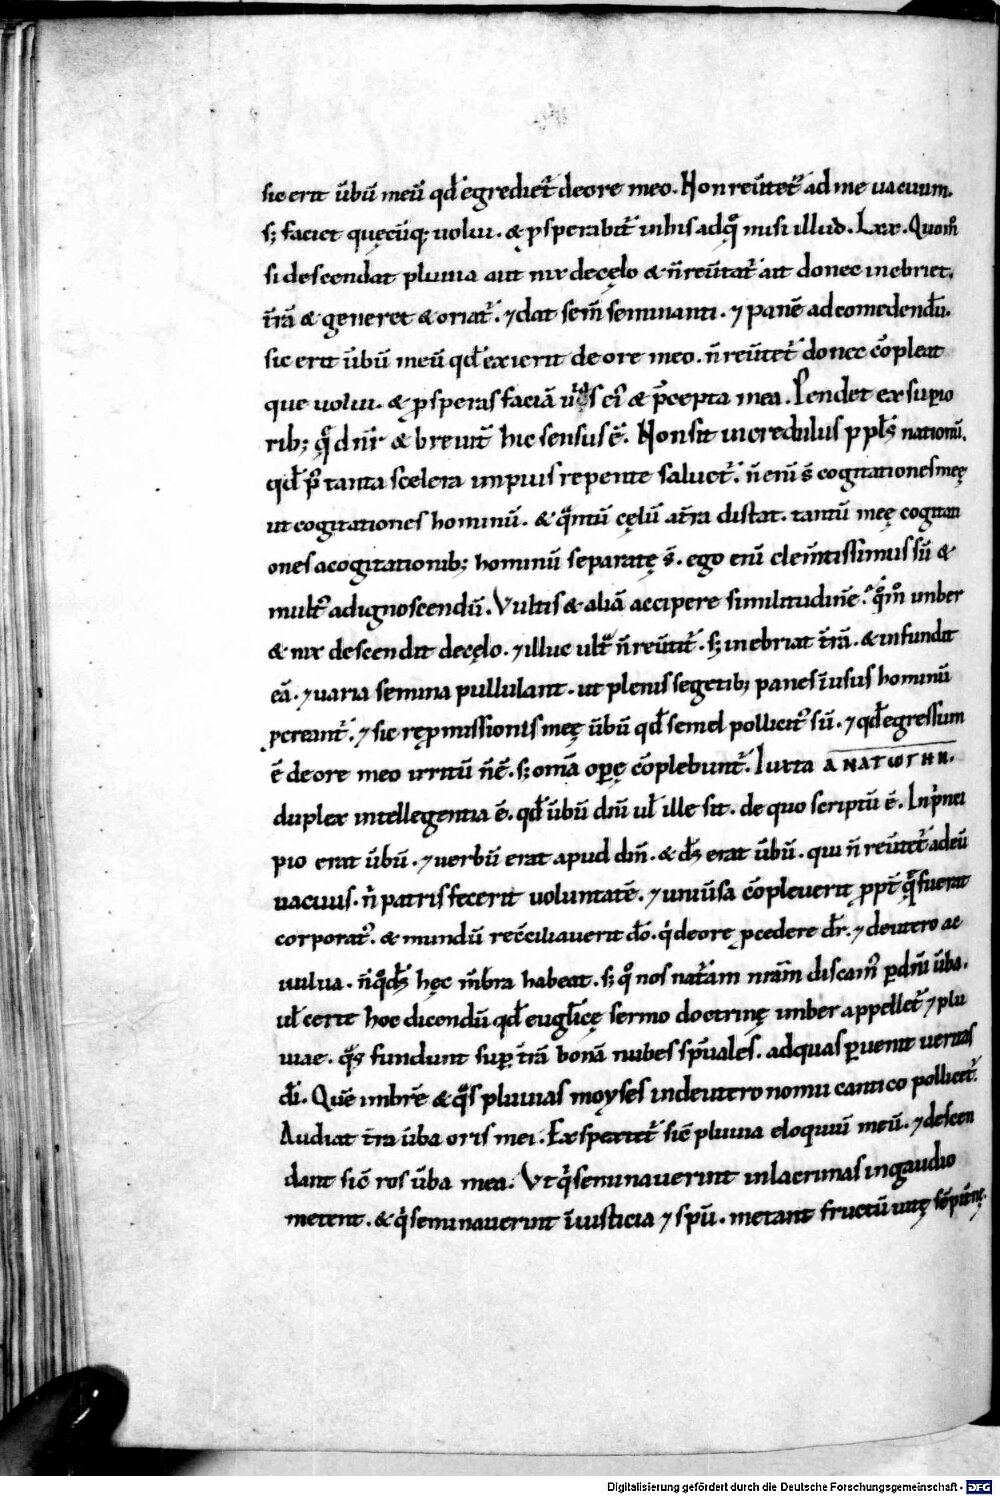 sic erit ūbū meū qđ egrediet᷑ de ore meo. Non reūtet᷑ ad me uacuum.
s; faciet quęcūq; uolui. & ꝓsperabit᷑ in his ad q̊ misi illud. Lxx. Quom̊
si descendat pluuia aut nix de cęlo & n̄ reūtat᷑ ait donec inebriet.
t̄rā & generet & oriat᷑. ⁊ dat sem̄ seminanti. ⁊ panē ad comedendū.
sic erit ūbū meū qđ exierit de ore meo. n̄ reūtet᷑ donec cōpleat
que uolui. & ꝓsperas faciā uias & p̄cepta mea. Pendet ex supio
rib; & breuit᷑ hic sensus ē. Non sit incredulus nationū.
qđ p̱ tanta scelera impius repente saluet᷑. n̄ eni s̄ cogitationes meę
ut cogitationes hominū. & qntū cęlū a t̄ra distat. tantū meę cogitati
ones a cogitationib; hominū separatę s̄. ego eni clem̄tissimus sū &
mult᷒ ad ignoscendū. Vultis & aliā accipere similitudinē. qm̊ imber
& nix descendit de cęlo. ⁊ illuc ult̄ n̄ reūtit᷑. s; inebriat t̄rā. & infundit
eā. ⁊ uaria semina pullulant. ut plenis segetib; panes ī usus hominū
ꝓcreant᷑. ⁊ sic ręꝓmissionis meę ūbū qđ semel pollicit᷒ sū. ⁊ qđ egressum
ē de ore meo irritū n̄ ē. s; om̄a oꝑę cōplebunt᷑. Iuxta ΑΝΑΓΩΓΗΝ.
duplex intellegentia ē. qđ ūbū dn̄i uł ille sit. de quo scriptū ē. In pnci
pio erat ūbū. ⁊ uerbū erat apud dm̄. & ds̄ erat ūbū. qui n̄ reūtet᷑ ad eū
uacuus. n̄ patris fecerit uoluntatē. ⁊ uniūsa cōpleuerit ꝓpt̄ quę fuerat
corporat᷒. & mundū recc̄iliauerit dō. qi de ore ꝓcedere dr̄. ⁊ de utero ac
uulua. n̄ qđ ds̄ hęc m̄bra habeat. s; q̊ nos nat̄am nr̄am discam᷒ ꝑ dn̄i ūba.
uł certe hoc dicendū qđ eugl̄icę sermo doctrinę imber appellet᷑ ⁊ plu
uiae. qs fundunt suꝑ t̄rā bonā nubes spūales. ad quas ꝑuenit ueritas
di. Quē imbrē & qs pluuias moyses in deutero nomii cantico pollicet᷑.
Audiat t̄ra ūba oris mei. Exspectet᷑ sic̄ pluuia eloquiū meū. ⁊ descen
dant sic̄ ros ūba mea. Vt qi seminauerunt in lacrimas in gaudio
metent. & qi seminauerunt ī iusticia ⁊ spū. metant fructū uitę sēpit̄nę.
Digitalisierung gefördert durch die Deutsche Forschungsgemeinschaft - DFG